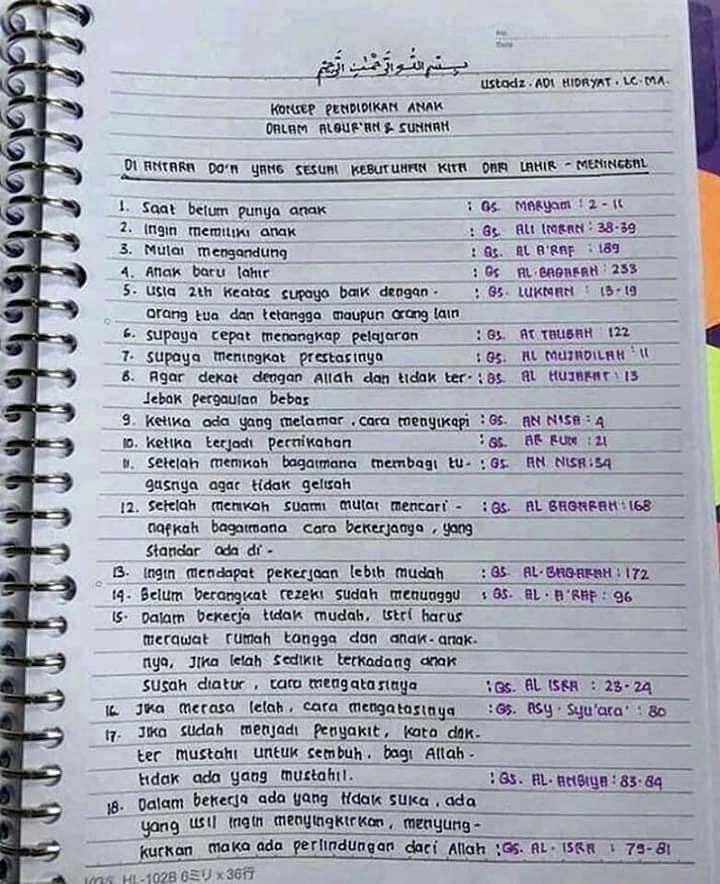 No.
Date
بسم الله الرحمن الرحيم
Ustadz. ADI HIDAYAT. LC. MA.
KONSEP PENDIDIKAN ANAK
DALAM ALQUR'AN & SUNNAH
DI ANTARA DO'A YANG SESUAI KEBUTUHAN KITA DARI LAHIR - MENINGGAL
1. Saat belum punya anak : Qs. MARyam : 2 - 11
2. Ingin memiliki anak : Qs. ALI IMRAN : 38-39
3. Mulai mengandung : Qs. AL A'RAF : 189
4. Anak baru lahir : Qs AL-BAQARAH : 233
5. Usia 2th keatas supaya baik dengan - : Qs. LUKMAN : 13-19
orang tua dan tetangga maupun orang lain
6. Supaya cepat menangkap pelajaran : Qs. AT TAUBAH : 122
7. Supaya meningkat prestasinya : Qs. AL MUJADILAH : 11
8. Agar dekat dengan Allah dan tidak ter- : Qs. AL HUJARAT : 13
Jebak pergaulan bebas
9. Ketika ada yang melamar, cara menyikapi : Qs. AN NISA : 4
10. Ketika terjadi pernikahan : Qs. AR RUM : 21
11. Setelah menikah bagaimana membagi tu- : Qs. AN NISA : 34
gasnya agar tidak gelisah
12. Setelah menikah suami mulai mencari - : Qs. AL BAQARAH : 168
nafkah bagaimana cara bekerjanya, yang
Standar ada di -
13. Ingin mendapat pekerjaan lebih mudah : Qs. AL-BAQARAH : 172
14. Belum berangkat rezeki sudah menunggu : Qs. AL-A'RAF : 96
15. Dalam bekerja tidak mudah, istri harus
merawat rumah tangga dan anak-anak-
nya, Jika lelah sedikit terkadang anak
susah diatur, cara mengatasinya : Qs. AL ISRA : 23-24
16. Jika merasa lelah, cara mengatasinya : Qs. Asy-Syu'ara' : 80
17. Jika sudah menjadi penyakit, kata dok-
ter mustahi untuk sembuh. bagi Allah -
tidak ada yang mustahil. : Qs. AL-ANBIYA : 83-84
18. Dalam bekerja ada yang tidak suka, ada
yang usil ingin menyingkirkan, menyung-
kurkan maka ada perlindungan dari Allah : Qs. AL-ISRA : 79-81
HL-102B 6ミリ x 36行